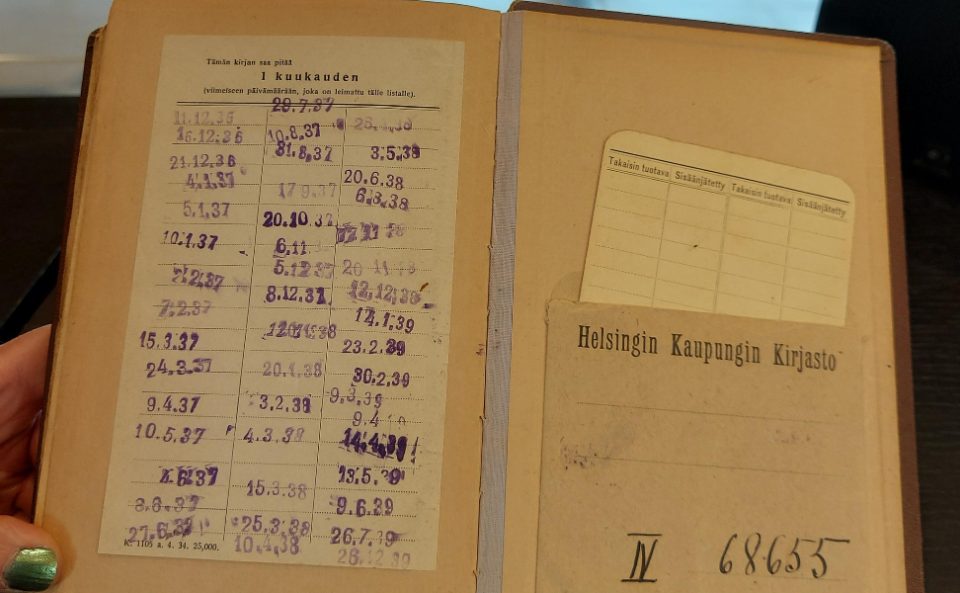 Tämän kirjan saa pitää
1 kuukauden
(viimeiseen päivämäärään, joka on leimattu tälle listalle).
11.12.36
16.12.36
21.12.36
4.1.37
5.1.37
10.1.37
7.2.37
15.3.37
24.3.37
9.4.37
10.5.37
27.6.37
K. 1105 a. 4. 34. 25,000.
29.7.37
10.8.37
31.8.37
17.9.37
20.10.37
6.11
5.12.37
8.12.37
20.1.38
3.2.38
4.3.38
15.3.38
25.3.38
10.4.38
3.5.38
20.6.38
6.8.38
12.12.38
23.2.39
30.2.39
9.3.39
9.4
14.4.39
13.5.39
9.6.39
26.7.39
28.12.39
Takaisin tuotava Sisäänjätetty Takaisin tuotava Sisäänjätetty
Helsingin Kaupungin Kirjasto
IV 68655